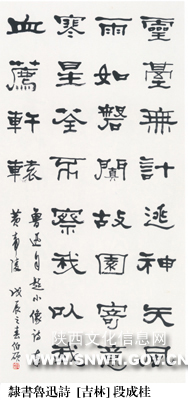 靈臺無計逃神矢風
雨如磐闇故園寄意
寒星荃不察我以我
血薦軒轅
魯迅自題小像詩
黃帝陵 戊辰之春
陕西文化信息网
WWW.SNWH.GOV.CN
隸書魯迅詩 [吉林] 段成桂